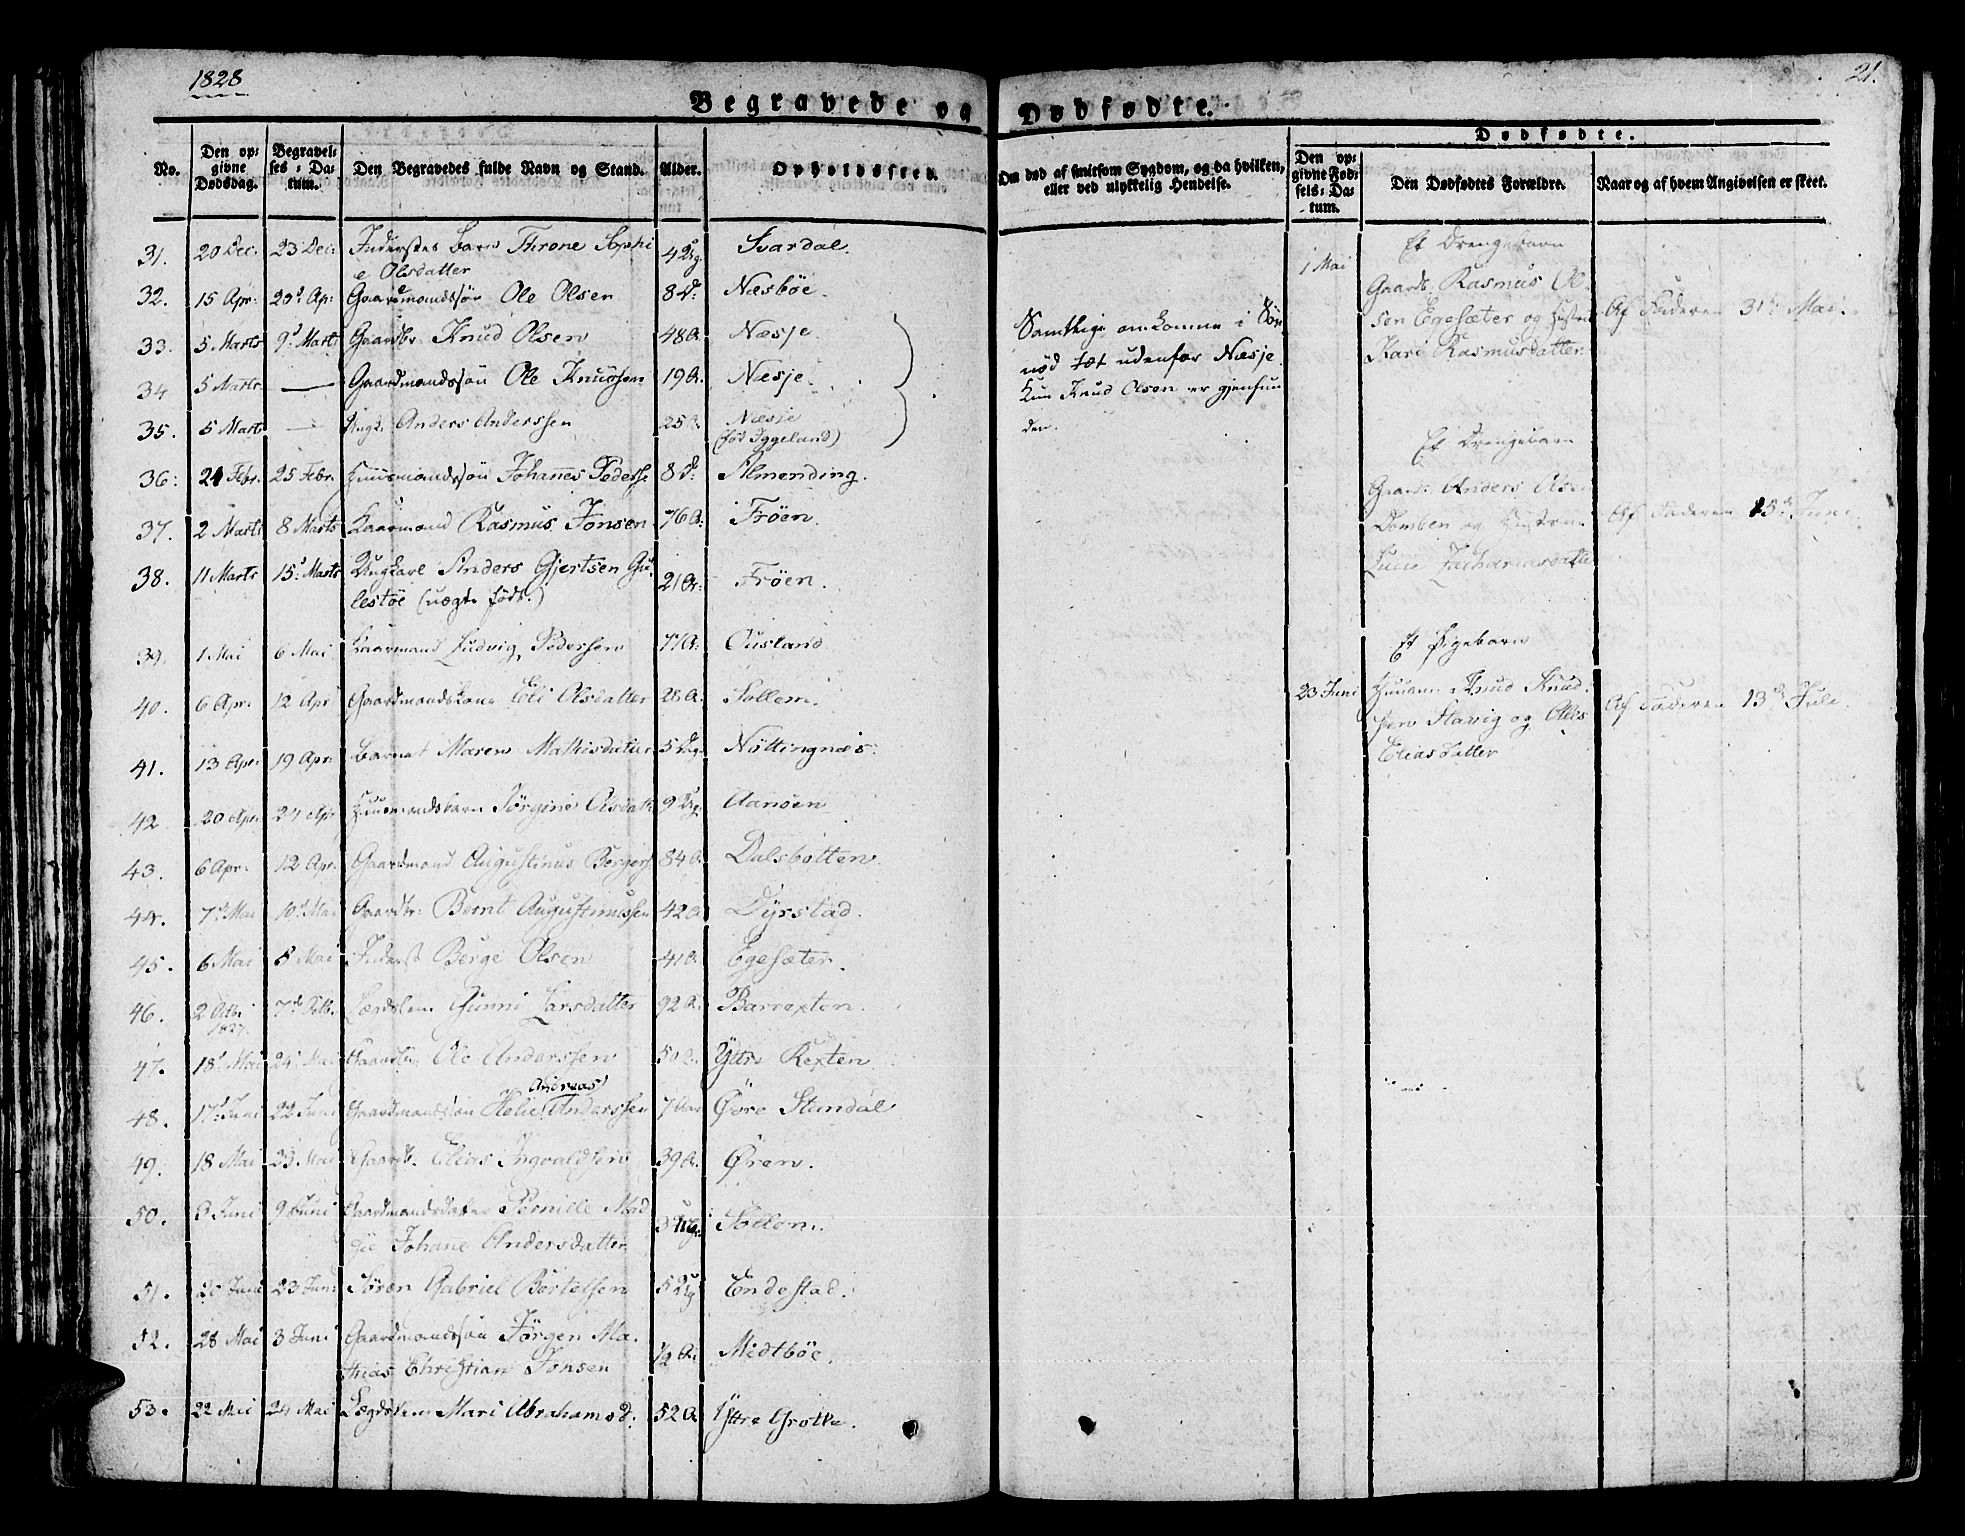 1828
21.
Begravede og Dødfødte.
Dødfødte.
No. Den opgivne Dødsdag. Begravelses-Datum. Den Begravedes fulde Navn og Stand. Alder. Opholdssted. Om død af smitsom Sygdom, og da hvilken, eller ved ulykkelig Hendelse. Den opgivne Fødsels-Datum. Den Dødfødtes Forældre. Naar og af hvem Angivelsen er skeet.
31. 20 Dec. 23 Dec. Inderstes barn Throne Sophi 4 Svardal.
e Olsdatter
32. 15 Apr: 20 Ap: Gaardmandssøn Ole Olsen 8 Næsbøe.
33. 5 Marts 9 Marts Gaardbr. Knud Olsen 48 A. Næsje
34 5 Marts — Gaardmandssøn Ole Knudsen 19 A. Næsje.
35. 5 Marts — Anders Anderssen 25 A. Næsje
(fød Iggeland)
36: 21 Febr. 25 Febr. Huusmandssøn Johannes Pederss 8 Almending.
37. 2 Marts 8 Marts Kaarmand Rasmus Jonsen 76 A: Frøen.
38. 11 Marts 15 Marts Ungkarl Anders Gjertsen Gu 21 A: Frøen.
lestøe (uægte født.)
39. 1 Mai 6 Mai Kaarmand Ludvig Pedersen 77 A: Ousland
40. 6 Apr. 12 Apr Gaardmandskone Eli Olsdatter 28 A. Sollem.
41. 13 Apr. 19 Apr: barnet Maren Mathisdatter 5 Nøttingnæs:
42. 20 Apr. 24 Apr Huusmandsbarn Jørgine Olsdatt 9 Aanøen
43. 6 Apr. 12 Apr. Gaardmand Augustinus Bergers 84 A. Dalsbotten.
44. 7 Mai 10 Mai Gaardbr: Bernt Augustinussen 42 A Dyrstad.
45. 6 Mai 5 Mai Inderst Berge Olsen 41 A Egesæter.
46. 2 7 Lægdslem Gunni Larsdatter 92 A. Barrexten.
1827.
47. 18 Mai 24 Mai Gaardbr. Ole Anderssen 50 A. Yttre Rexten
Andreas
48. 17 Juni 22 Juni Gaardmandssøn Helie Anderssen 7 Aar Øvre Standal
49. 18 Mai 23 Mai Gaardb. Elias Ingvaldsen 39 A. Øren.
50. 3 Juni 9 Juni Gaardmandsdatter Pernille Mad 3 Sollem.
Johane Andersdatter
51. 20 Juni 23 Juni Søren Gabriel Bertelsen 5 Endestad.
52. 28 Mai 3 Juni Gaardmandssøn Jørgen Ma- 1/2 A. Midtbøe.
thias Christian Jonsen
53. 22 Mai 24 Mai Lægdslem Mari Abrahamsd: 52 A Yttre Grotle.
Samtlige omkomne i Søe
nød tæt udenfor Næsje
Kun Knud Olsen er gjenfun
den.
1 Mai
Et Drengebarn
Gaardb. Rasmus Ol
sen Egesæter og Hustrue
Kari Rasmusdatter
Af Faderen 31 Mai.
Et Drengebarn
Gaardb. Anders Olse
Domben og Hustrue
Lucie Zachariasdatter
Af Faderen 15 Juni.
Et Pigebarn
23 Juni Huusm. Knud Knud
sen Stavig og
Eliasdatter
Af Faderen 13 Juli.